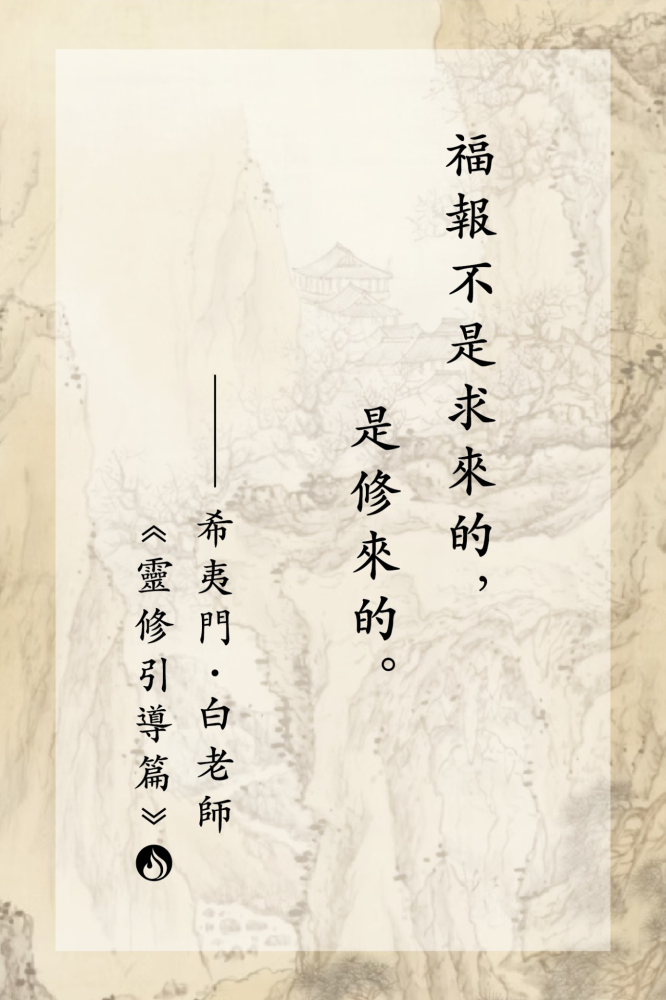 福報不是求來的，
是修來的。
——希夷門·白老師
《靈修引導篇》